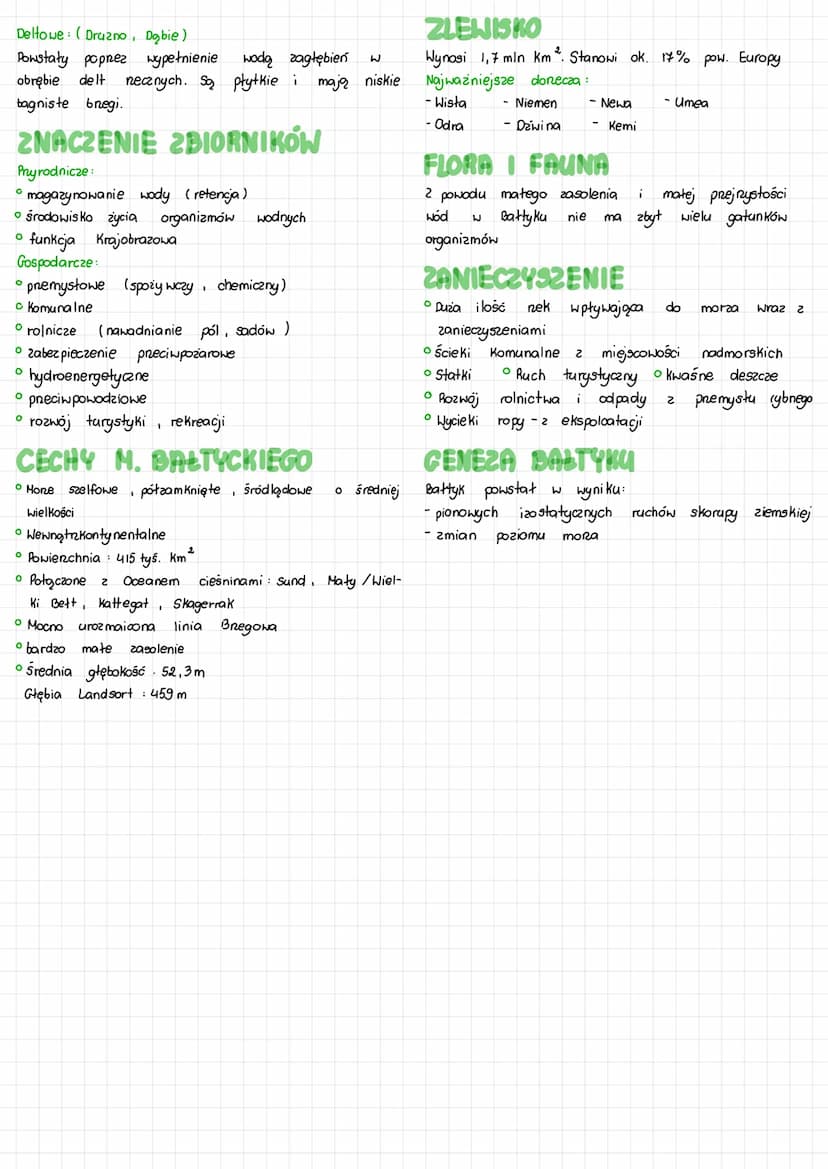 Deltowe: ( Drużno, Dąbie )
Powstały poprzez wypełnienie wodą zagłębień w
obrębie delt rzecznych. Są płytkie i mają niskie
bagniste brzegi.
ZNACZENIE ZBIORNIKÓW
Przyrodnicze:
° magazynowanie wody ( retencja )
° środowisko życia organizmów wodnych
° funkcja krajobrazowa
Gospodarcze:
° przemysłowe (spożywczy, chemiczny)
° Komunalne
° rolnicze (nawadnianie pól, sadów )
° zabezpieczenie przeciwpożarowe
° hydroenergetyczne
° przeciwpowodziowe
° rozwój turystyki, rekreacji
CECHY M. BAŁTYCKIEGO
° Morze szelfowe, półzamknięte, śródlądowe o średniej
wielkości
° Wewnątrzkontynentalne
° Powierzchnia : 415 tyś. km²
° Połączone z Oceanem cieśninami: Sund, Mały / Wiel-
ki Bełt, Kattegat, Skagerrak
° Mocno urozmaicona linia Brzegowa
° bardzo małe zasolenie
° Średnia głębokość . 52,3 m
Głębia Landsort : 459 m
ZLEWISKO
Wynosi 1,7 mln km². Stanowi ok. 17% pow. Europy
Najważniejsze dorzecza :
- Wisła - Niemen - Newa - Umea
- Odra - Dźwina - Kemi
FLORA I FAUNA
Z powodu małego zasolenia i małej przejrzystości
wód w Bałtyku nie ma zbyt wielu gatunków
organizmów
ZANIECZYSZENIE
° Duża ilość rzek wpływająca do morza wraz z
zanieczyszeniami
° Ścieki Komunalne z miejscowości nadmorskich
° Statki ° Ruch turystyczny ° Kwaśne deszcze
° Rozwój rolnictwa i odpady z przemysłu rybnego
° Wycieki ropy - z ekspoloatacji
GENEZA BAŁTYKU
Bałtyk powstał w wyniku:
- pionowych izostatycznych ruchów skorupy ziemskiej
- zmian poziomu morza